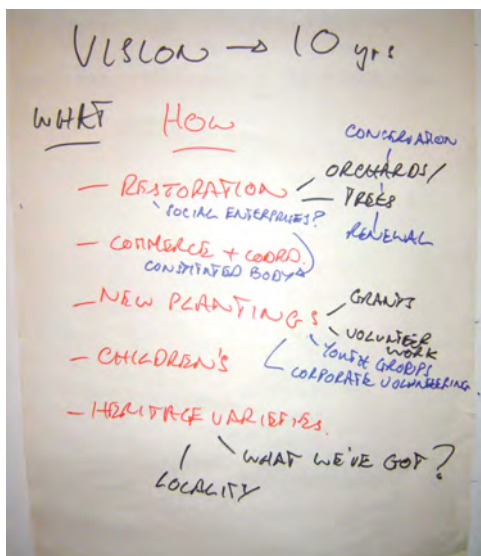 VISION → 10 yrs
WHAT HOW
CONSERVATION
— RESTORATION — ORCHARDS/
TREES
SOCIAL ENTERPRISES?
RENEWAL
— COMMERCE + COORD.
CONSTITUTED BODY
— NEW PLANTINGS
GRANTS
VOLUNTEER
WORK
YOUTH GROUPS
CORPORATE VOLUNTEERING
— CHILDREN'S
— HERITAGE VARIETIES.
WHAT WE'VE GOT?
LOCALITY